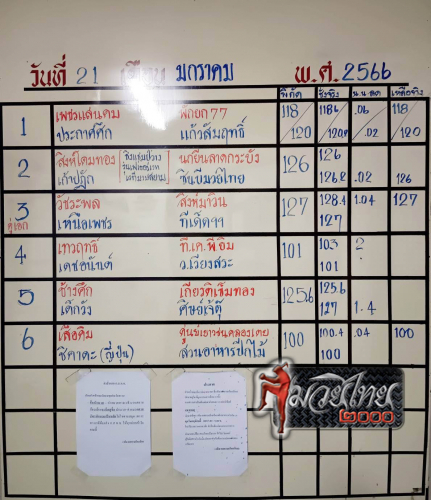 วันที่ 21 เดือน มกราคม พ.ศ. 2566
พิกัด ชั่งจริง น.น.ลด เหลือจริง
1 เพชรแสนคม พักยก77 118 118.6 .06 118
ประกาศศึก แก้วสัมฤทธิ์ 120 120.2 .02 120
2 สิงห์โดมทอง นกยีนลาดกระบัง 126 126
เก้าปฏัก ซินบีมวยไทย 126.2 .02 126
3 วัชระพล สิงห์มาวิน 127 128.4 1.04 127
คู่เอก เหนือเพชร ทีเด็ด99 127
4 เทวฤทธิ์ ที.เค.พี.ยิม 101 103 ?
เดชอนันต์ ว.เวียงสระ 101
5 ช้างศึก เกียรติเข็มทอง 125.6 125.6
เด็กวัง ศิษย์เจ๊ตุ๊ 127 1.4
6 เสือคิม ศูนย์เยาวชนคลองเตย 100 100.4 .04 100
ชิคาดะ (ญี่ปุ่น) สวนอาหารปีกไม้ 100
มวยไทย
๒๐๐๐